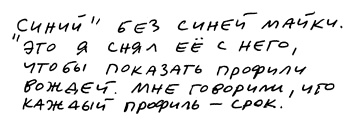 СИНИЙ" БЕЗ СИНЕЙ МАЙКИ.
"ЭТО Я СНЯЛ ЕЁ С НЕГО,
ЧТОБЫ ПОКАЗАТЬ ПРОФИЛИ
ВОЖДЕЙ. МНЕ ГОВОРИЛИ, ЧТО
КАЖДЫЙ ПРОФИЛЬ – СРОК.